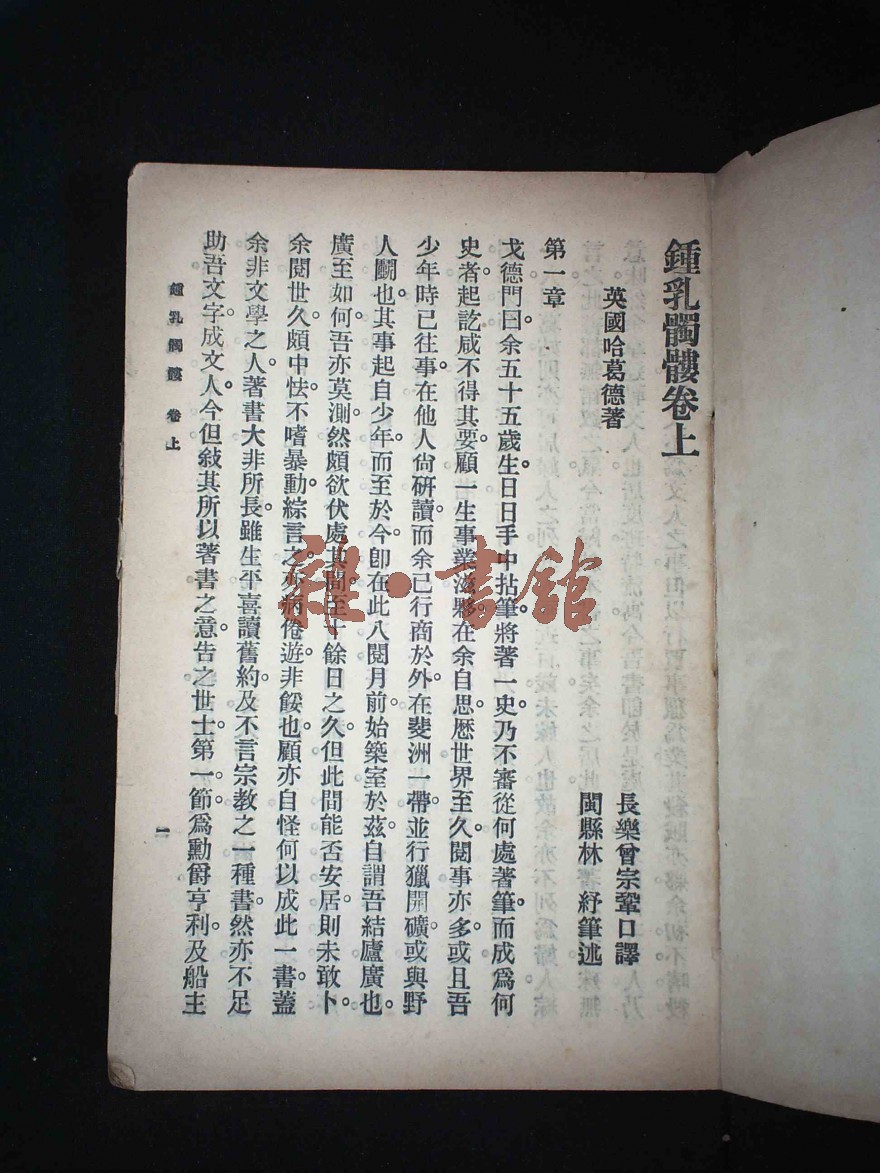 鍾乳髑髏卷上
英國哈葛德著
長樂曾宗鞏口譯
閩縣林 紓筆述
第一章
戈德門曰余五十五歲生日日手中拈筆將著一史乃不審從何處著筆而成爲何
史者起訖咸不得其要顧一生事業滋夥在余自思歷世界至久閱事亦多或且吾
少年時已往事在他人尙硏讀而余已行商於外在斐洲一帶並行獵開礦或與野
人鬭也其事起自少年而至於今卽在此八閱月前始築室於茲自謂吾結廬廣也
廣至如何吾亦莫測然頗欲伏處其間至十餘日之久但此間能否安居則未敢卜
余閱世久頗中怯不嗜暴動綜言之亦病倦遊非餒也顧亦自怪何以成此一書蓋
余非文學之人著書大非所長雖生平喜讀舊約及不言宗教之一種書然亦不足
助吾文字成文人今但敍其所以著書之意告之世士第一節爲勳爵亨利及船主
鍾乳髑髏 卷上
一
雜·書館